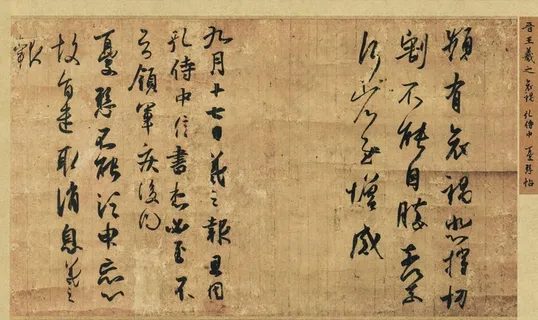 晉王羲之 哀禍 孔侍中 憂懸帖
頻有哀禍悲摧切
割不能自勝奈何
奈何省慰增感
九月十七日羲之報且因
孔侍中信書想必至不
知領軍疾後問
憂懸不能須臾忘心
故旨遣取消息羲之
報